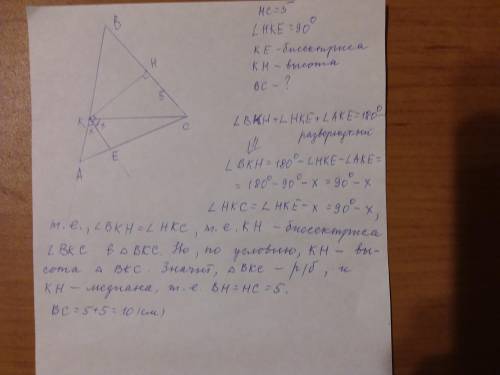 B
H
5
K
x
x
C
E
A
HC=5
∠HKE=90°
KE-биссектриса
KH-высота
BC-?
∠BKH+∠HKE+∠AKE=180°-
развернутый
∠BKH=180°-∠HKE-∠AKE=
=180°-90°-x=90°-x
∠HKC=∠HKE-x=90°-x,
т.е., ∠BKH=∠HKC, т.е. KH-биссектриса
∠BKC в △BKC. Но, по условию, KH-вы-
сота △BKC. Значит, △BKC-р/б, и
KH-медиана, т.е BH=HC=5.
BC=5+5=10(см)